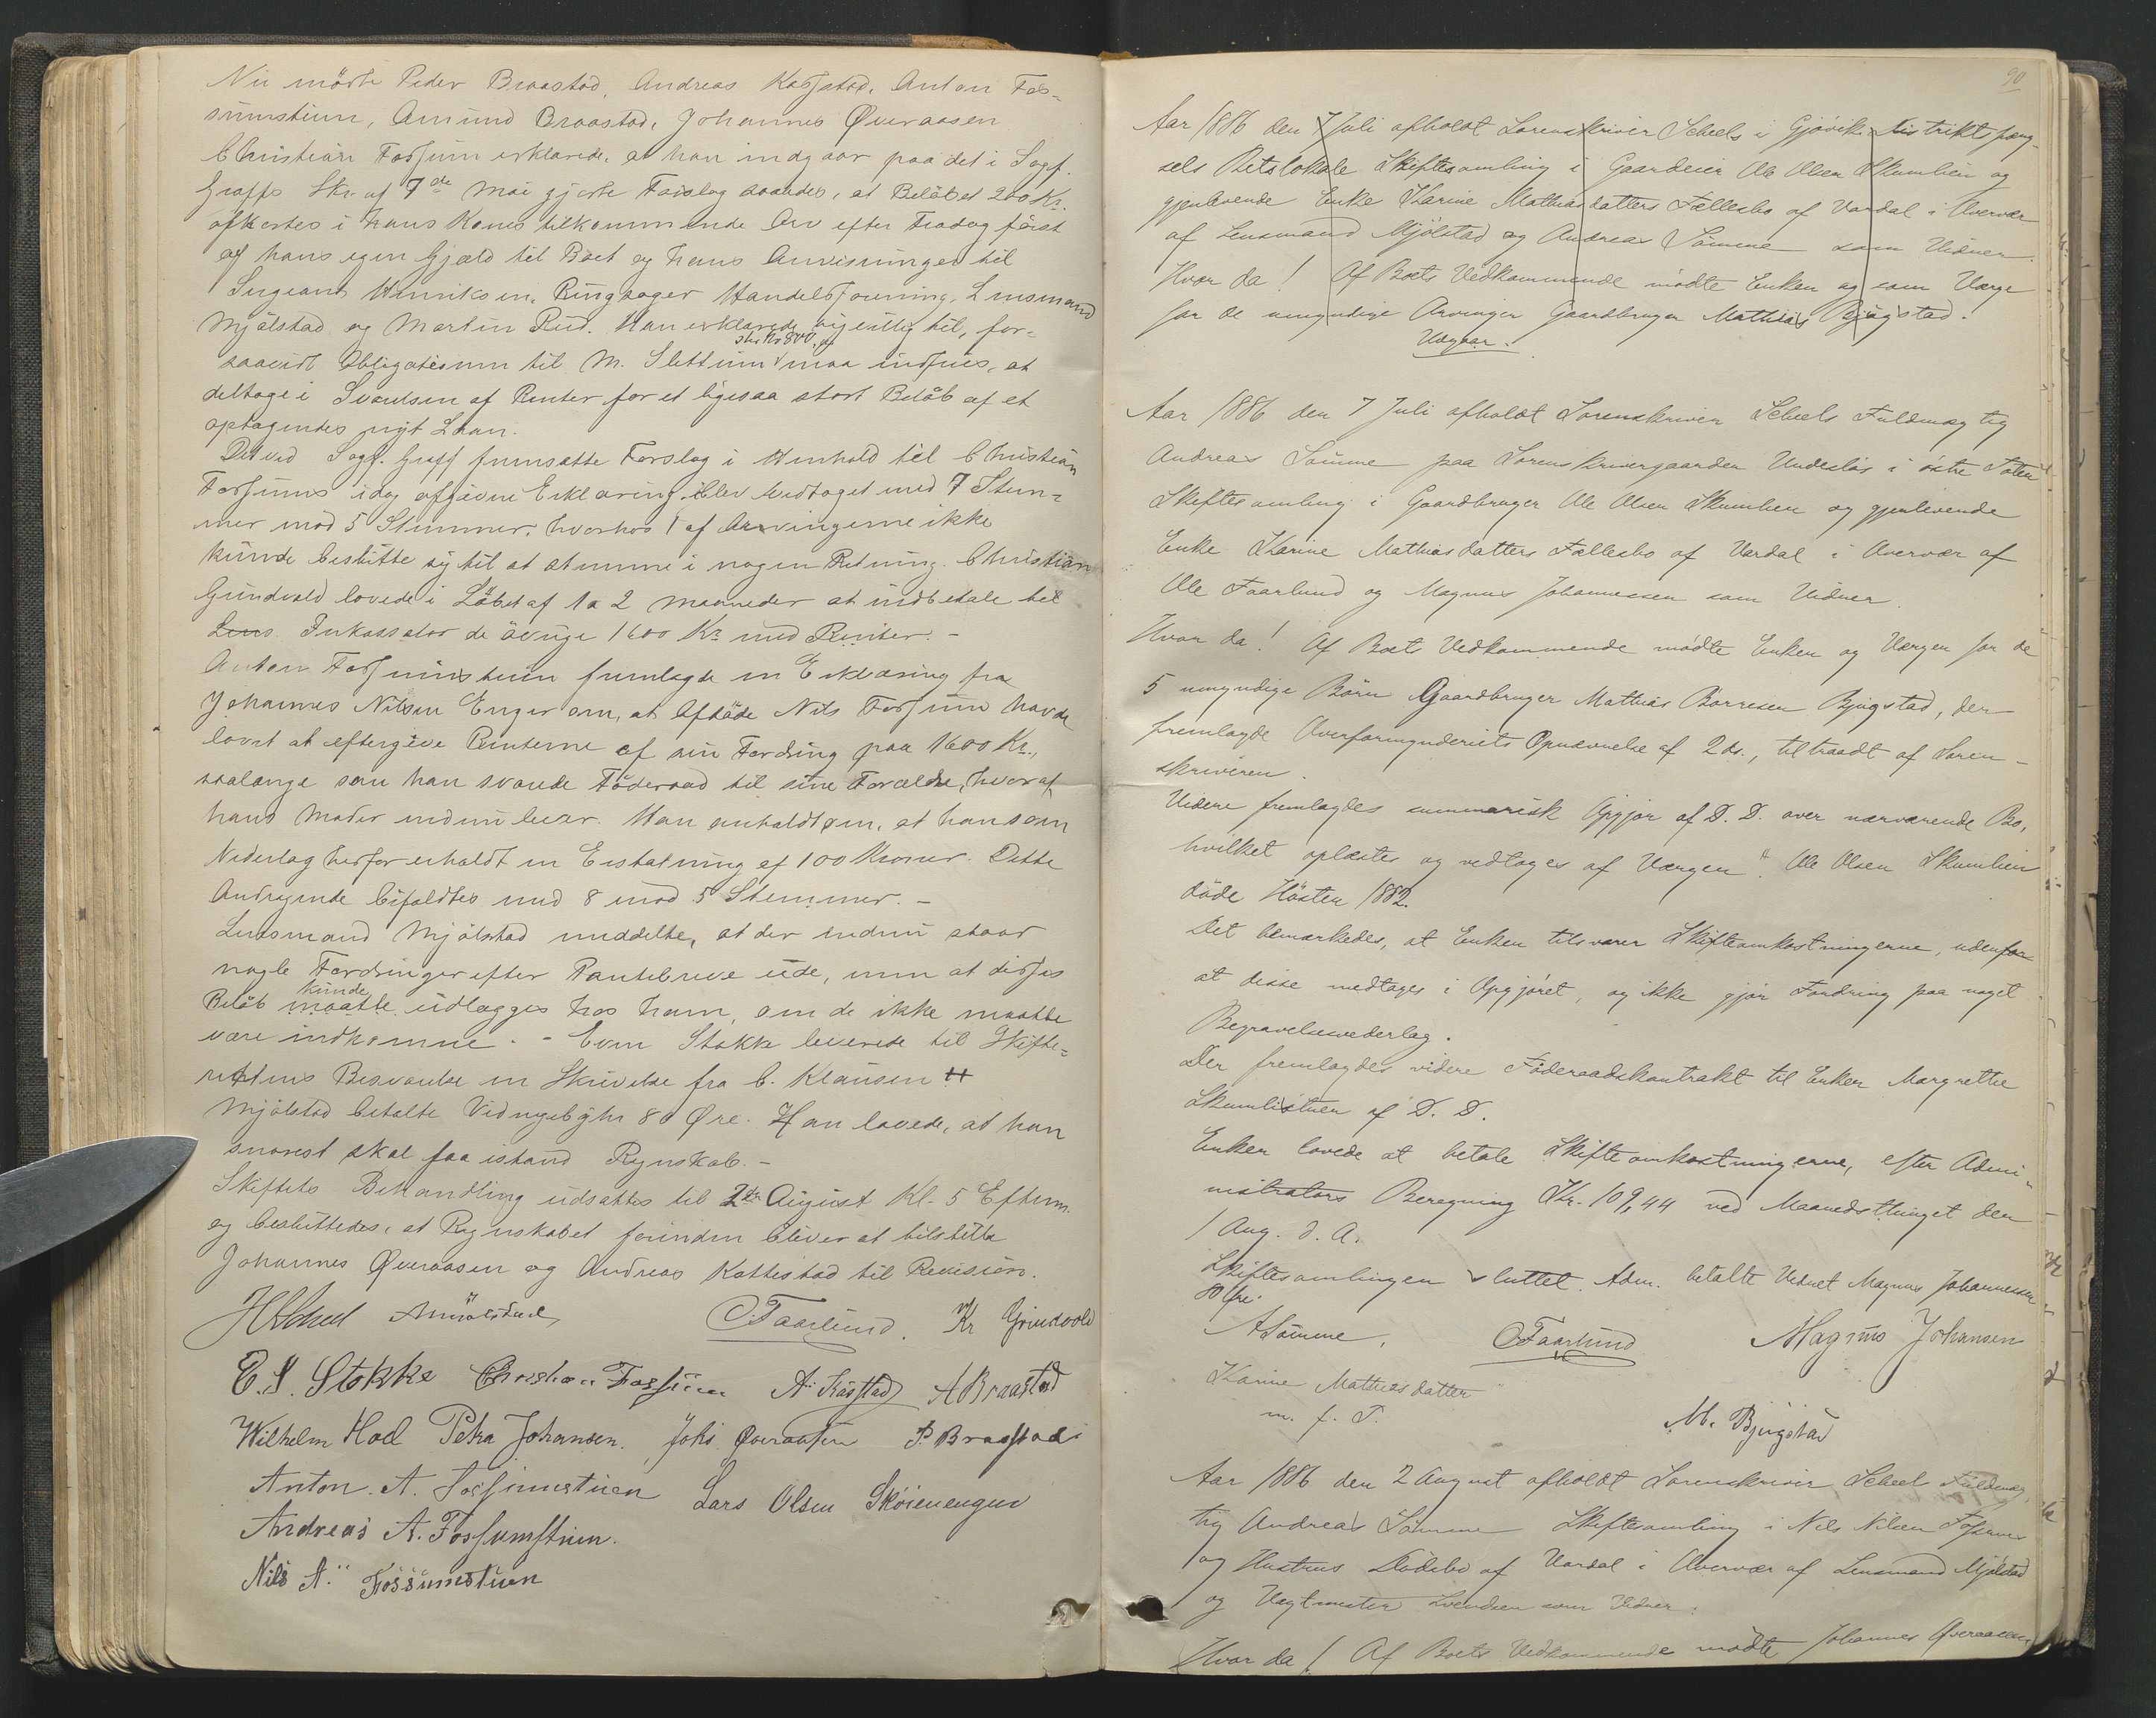 Nu mödte Peder Braastad, Andreas Kasstad, Anton Fos-
sumstuen, Amund Braastad, Johannes Øveraasen
Christian Fossum erklærede, at han indgaar paa det i Sagf.
Graffs Skr. af 7de Mai gjorte Forslag saaledes, at Beløbet 200 Kr.
afkortes i hans Kones tilkommende Arv efter Fradag först
af hans egen Gjæld til Boet og hans Anvisninger til
Sergeant Henriksen, Ringsager Handelsforening, Lensmand
Mjölstad og Martin Rud. Han erklærede sig villig til, for-
saavidt Obligationen til M. Slettum stor Kr 800, maa indfries, at
deltage i Svarelsen af Renter for et ligesaa stort Belöb af et
optagendes nyt Laan.
Det ved Sagf. Graff fremsatte Forslag i Henhold til Christian
Fossums idag afgivne Erklæring blev vedtaget med 7 Stem-
mer mod 5 Stemmer, hvorhos 1 af Arvingerne ikke
kunde beslutte sig til at stemme i nogen Retning. Christian
Grindvold lovede i Löbet af 1 a 2 Maaneder at indbetale til
Lens Inkassator de övrige 1600 Kr med Renter. -
Anton Fossumstuen fremlagde en Erklæring fra
Johannes Nilsen Enger om, at Afdöde Nils Fossum havde
lovet at eftergive Renterne af sin Fordring paa 1600 Kr.,
saalænge som han svarede Föderaad til sine Forældre, hvoraf
hans Moder endnu lever. Han anholdt om, at han som
Vederlag herfor erholdt en Erstatning af 100 Kroner. Dette
Andragende bifaldtes med 8 mod 5 Stemmer. -
Lensmand Mjölstad meddelte, at der endnu staar
nogle Fordringer efter Pantebreve ude, men at disses
Belöb maatte kunde udlægges hos ham, om de ikke maatte
være indkomne. - Even Stokke leverede til Skifte-
rettens Besvarelse en Skrivelse fra C. Klausen
Mjölstad betalte Vidnegebyhr 80 Øre. Han lovede, at han
snarest skal faa istand Regnskab. -
Skiftets Behandling udsattes til 2den August Kl. 5 Efterm.
og besluttedes, at Regnskabet forinden bliver at tilstille
Johannes Øveraasen og Andreas Kattestad til Revision.
HScheel AMjølstad OFaarlund. Kr Grindvold
E. S. Stokke Christian Fossum A. Kasstad ABraastad
Wilhelm Hoel Petra Johansen. Johs. Øveraasen P. Braastad
Anton. A. Fossumstuen Lars Olsen Skøienengen
Andreas A. Fossumstuen.
Nils A. Fossumstuen
90
Aar 1886 den 7 Juli afholdt Sorenskriver Scheels i Gjövik Distriktsfæng-
sels Retslokale Skiftesamling i Gaardeier Ole Olsen Skumlien og
gjenlevende Enke Karine Mathiasdatters Fællesbo af Vardal i Overvær
af Lensmand Mjölstad og Andreas Sömme som Vidner.
Hvor da! Af Boets Vedkommende mödte Enken og som Værge
for de umyndige Arvinger Gaardbruger Mathias Bjugstad.
Udgaar.
Aar 1886 den 7 Juli afholdt Sorenskriver Scheels Fuldmægtig
Andreas Sömme paa Sorenskrivergaarden Undeslös i östre Toten
Skiftesamling i Gaardbruger Ole Olsen Skumlien og gjenlevende
Enke Karine Mathiasdatters Fællesbo af Vardal i Overvær af
Ole Faarlund og Magnus Johannessen som Vidner.
Hvor da! Af Boets Vedkommende mödte Enken og Værgen for de
5 umyndige Börn Gaardbruger Mathias Borresen Bjugstad, der
fremlagde Overformynderiets Opnævnelse af 2 ds., tiltraadt af Soren-
skriveren.
Videre fremlagdes summarisk Opgjör af D. D. over nærværende Bo,
hvilket oplæstes og vedtoges af Værgen. Ole Olsen Skumlien
döde Hösten 1882.
Det bemærkedes, at Enken tilsvarer Skifteomkostningerne, udenfor
at disse medtages i Opgjöret, og ikke gjör Fordring paa noget
Begravelsesvederlag.
Der fremlagdes videre Föderaadskontrakt til Enken Margrethe
Skumlistuen af D. D.
Enken lovede at betale Skifteomkostningerne, efter Admi-
nistrators Beregning Kr. 109,44 ved Maanedsthinget den
1 Aug. d. A.
Skiftesamlingen sluttet. Adm. betalte Vidnet Magnus Johannessen
80 Øre.
ASömme, OFaarlund Magnus Johansen
Karine Mathiasdatter
m. f. P.
M. Bjugstad
Aar 1886 den 2 August afholdt Sorenskriver Scheel Fuldmæg
tig Andreas Sömme Skiftesamling i Nils Nilsen Fossums
og Hustrus Dödsbo af Vardal i Overvær af Lensmand Mjölstad
og Vagtmester Svendsen som Vidner.
Hvor da! Af Boets Vedkommende mödte Johannes Øveraasen